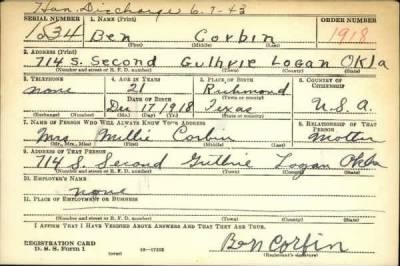 Hon. Discharge 6-7-43
SERIAL NUMBER 1. NAME (Print) ORDER NUMBER
1234 Ben Corbin 1918
(First) (Middle) (Last)
2. ADDRESS (Print)
714 S. Second Guthrie Logan Okla
(Number and street or R. F. D. number) (Town) (County) (State)
3. TELEPHONE 4. AGE IN YEARS 5. PLACE OF BIRTH 6. COUNTRY OF CITIZENSHIP
none 21 Richmond
DATE OF BIRTH (Town or county)
Dec 17 1918 Texas U.S.A.
(Mo.) (Day) (Yr.) (State or country)
7. NAME OF PERSON WHO WILL ALWAYS KNOW YOUR ADDRESS 8. RELATIONSHIP OF THAT PERSON
Mrs Millie Corbin Mother
(Mr., Mrs., Miss) (First) (Middle) (Last)
9. ADDRESS OF THAT PERSON
714 S. Second Guthrie Logan Okla
(Number and street or R. F. D. number) (Town) (County) (State)
10. EMPLOYER'S NAME
none
11. PLACE OF EMPLOYMENT OR BUSINESS
(Number and street or R. F. D. number) (Town) (County) (State)
I AFFIRM THAT I HAVE VERIFIED ABOVE ANSWERS AND THAT THEY ARE TRUE.
REGISTRATION CARD
D. S. S. Form 1
(over) 16—17105 Ben Corbin
(Registrant's signature)